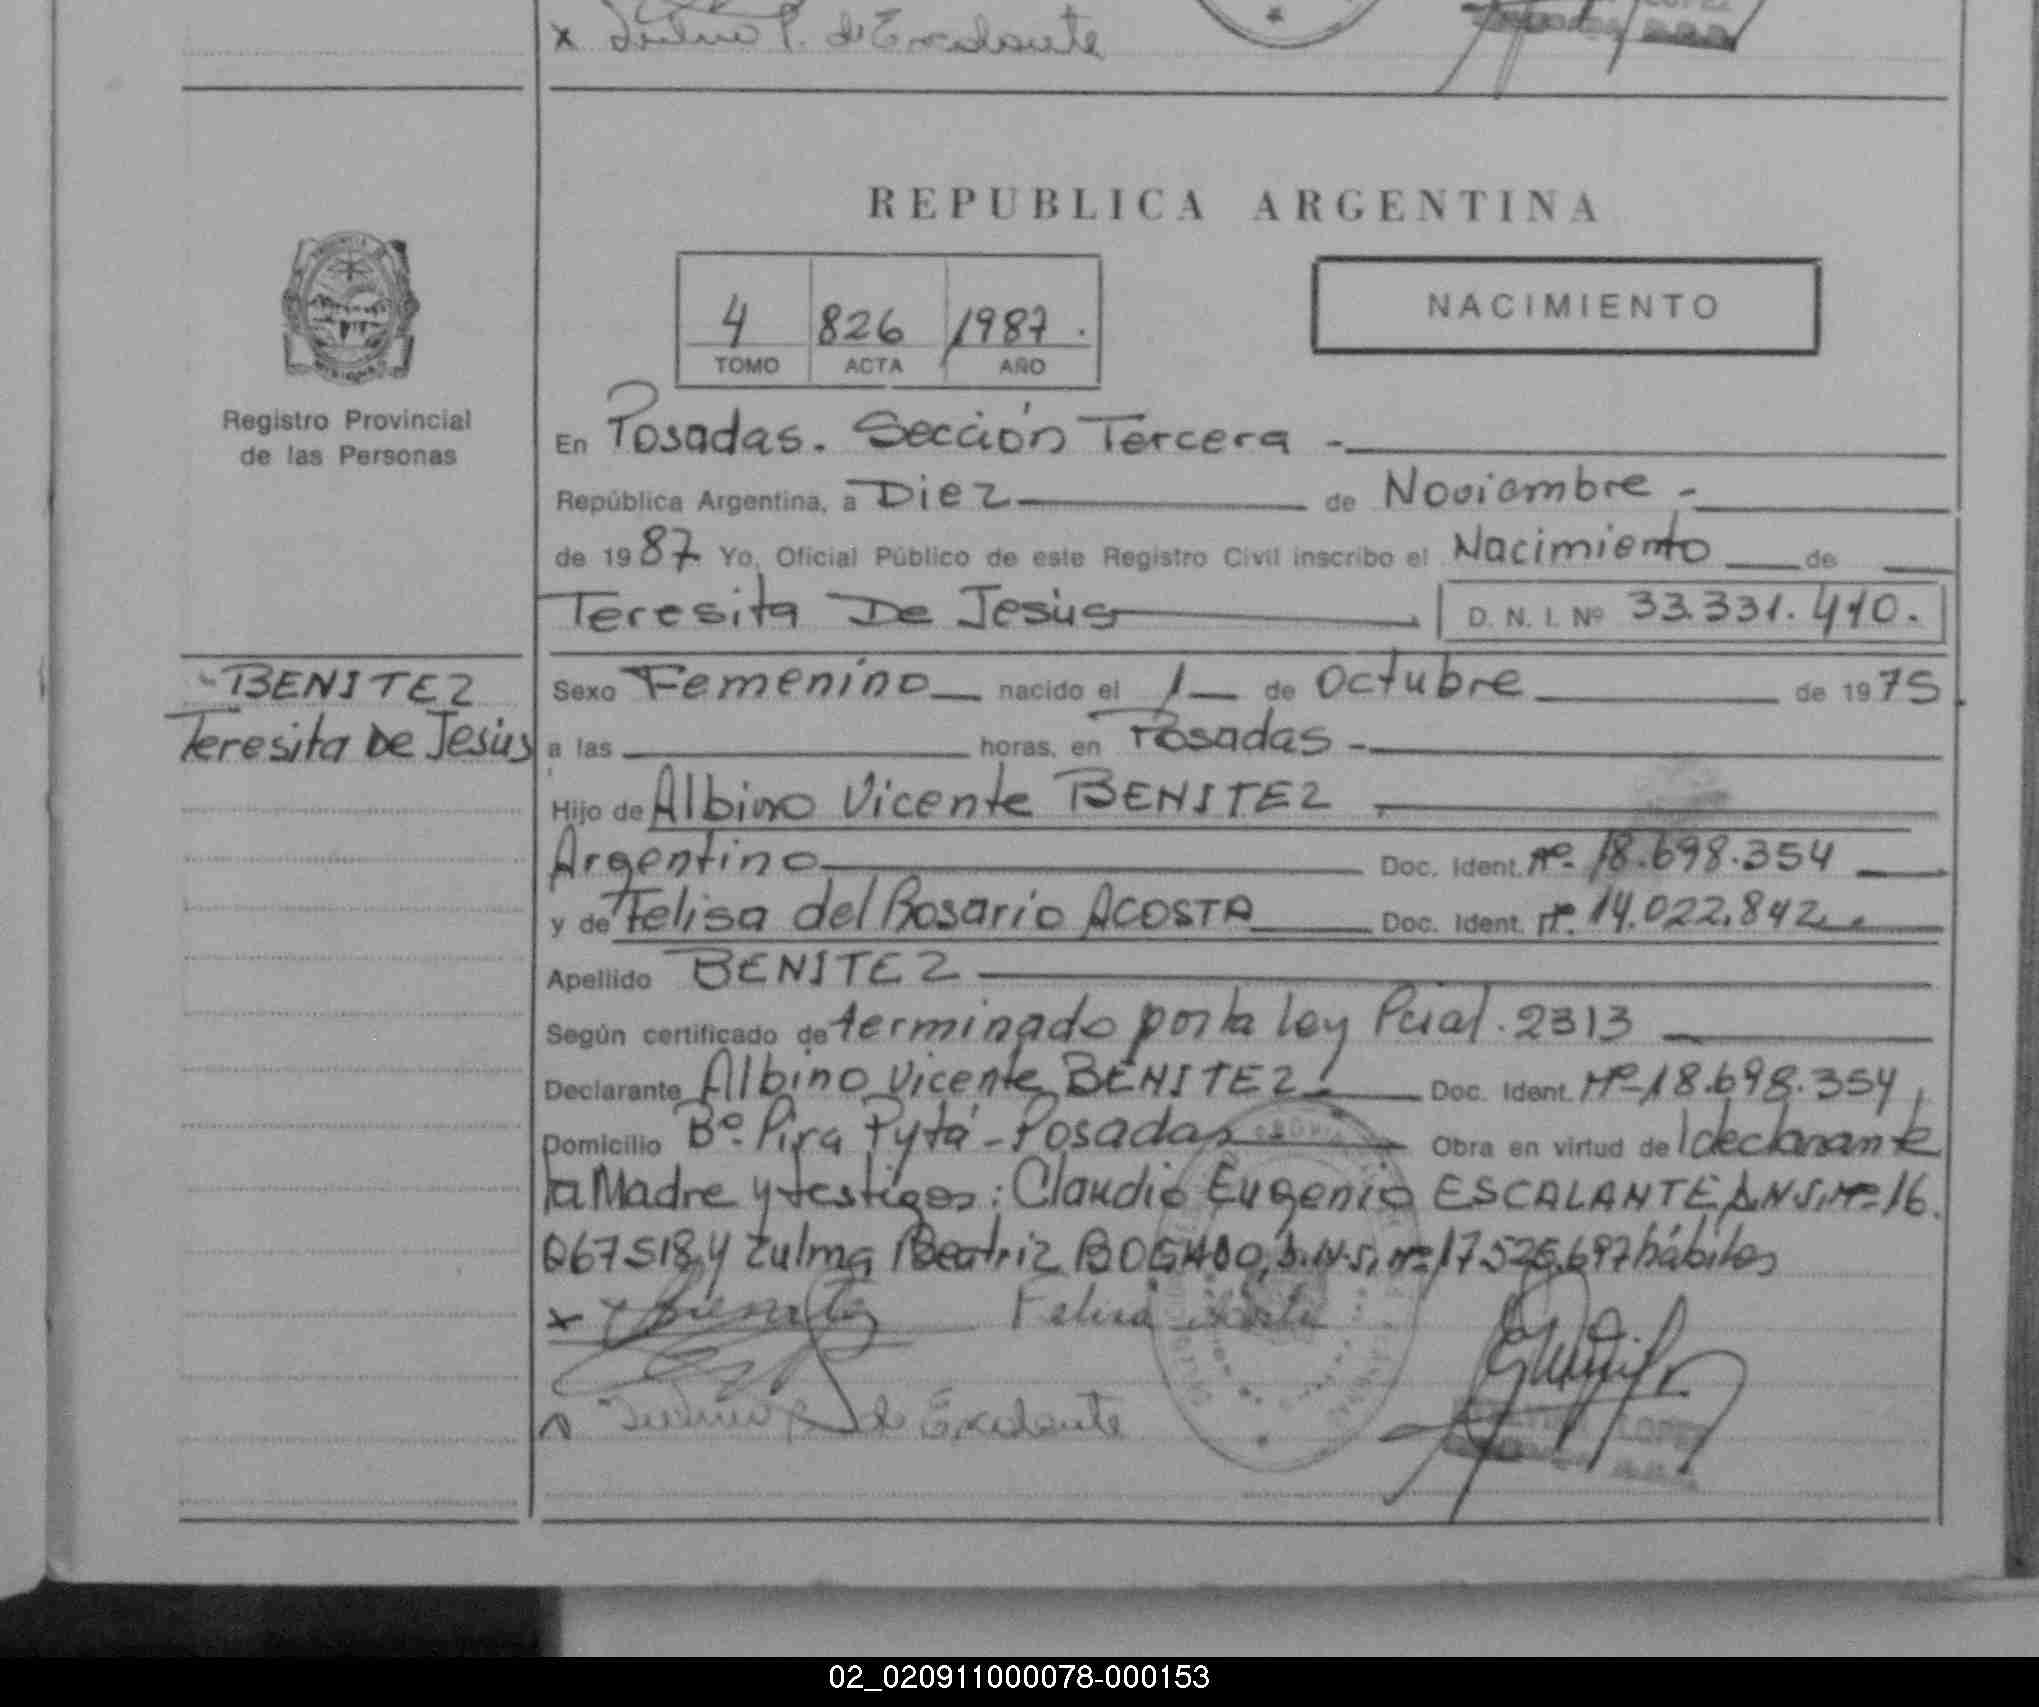 x Zulma P. de Escalante
REPUBLICA ARGENTINA
4 826 1987.
TOMO ACTA AÑO
NACIMIENTO
Registro Provincial
de las Personas
En Posadas. Sección Tercera -
República Argentina, a Diez de Noviembre -
de 1987. Yo, Oficial Público de este Registro Civil inscribo el Nacimiento de
Teresita De Jesús D. N. I. Nº 33.331.410.
BENITEZ
Teresita De Jesús
Sexo Femenino nacido el 1 de Octubre de 1975
a las horas, en Posadas -
Hijo de Albino Vicente BENITEZ
Argentino Doc. Ident. Nº 18.698.354
y de Felisa del Rosario ACOSTA Doc. Ident. Nº 14.022.842
Apellido BENITEZ
Según certificado de terminado por la ley Pcial. 2313
Declarante Albino Vicente BENITEZ Doc. Ident. Nº 18.698.354
Domicilio Bº Pira Pytá - Posadas Obra en virtud de l declarante
la Madre y testigos: Claudio Eugenio ESCALANTE D.N.I. Nº 16.
067518 y Zulma Beatriz BOGADO, D.N.I. Nº 17.526.697 hábiles
x Benitez Felisa Acosta
de Escalante
LOPEZ
02_020911000078-000153